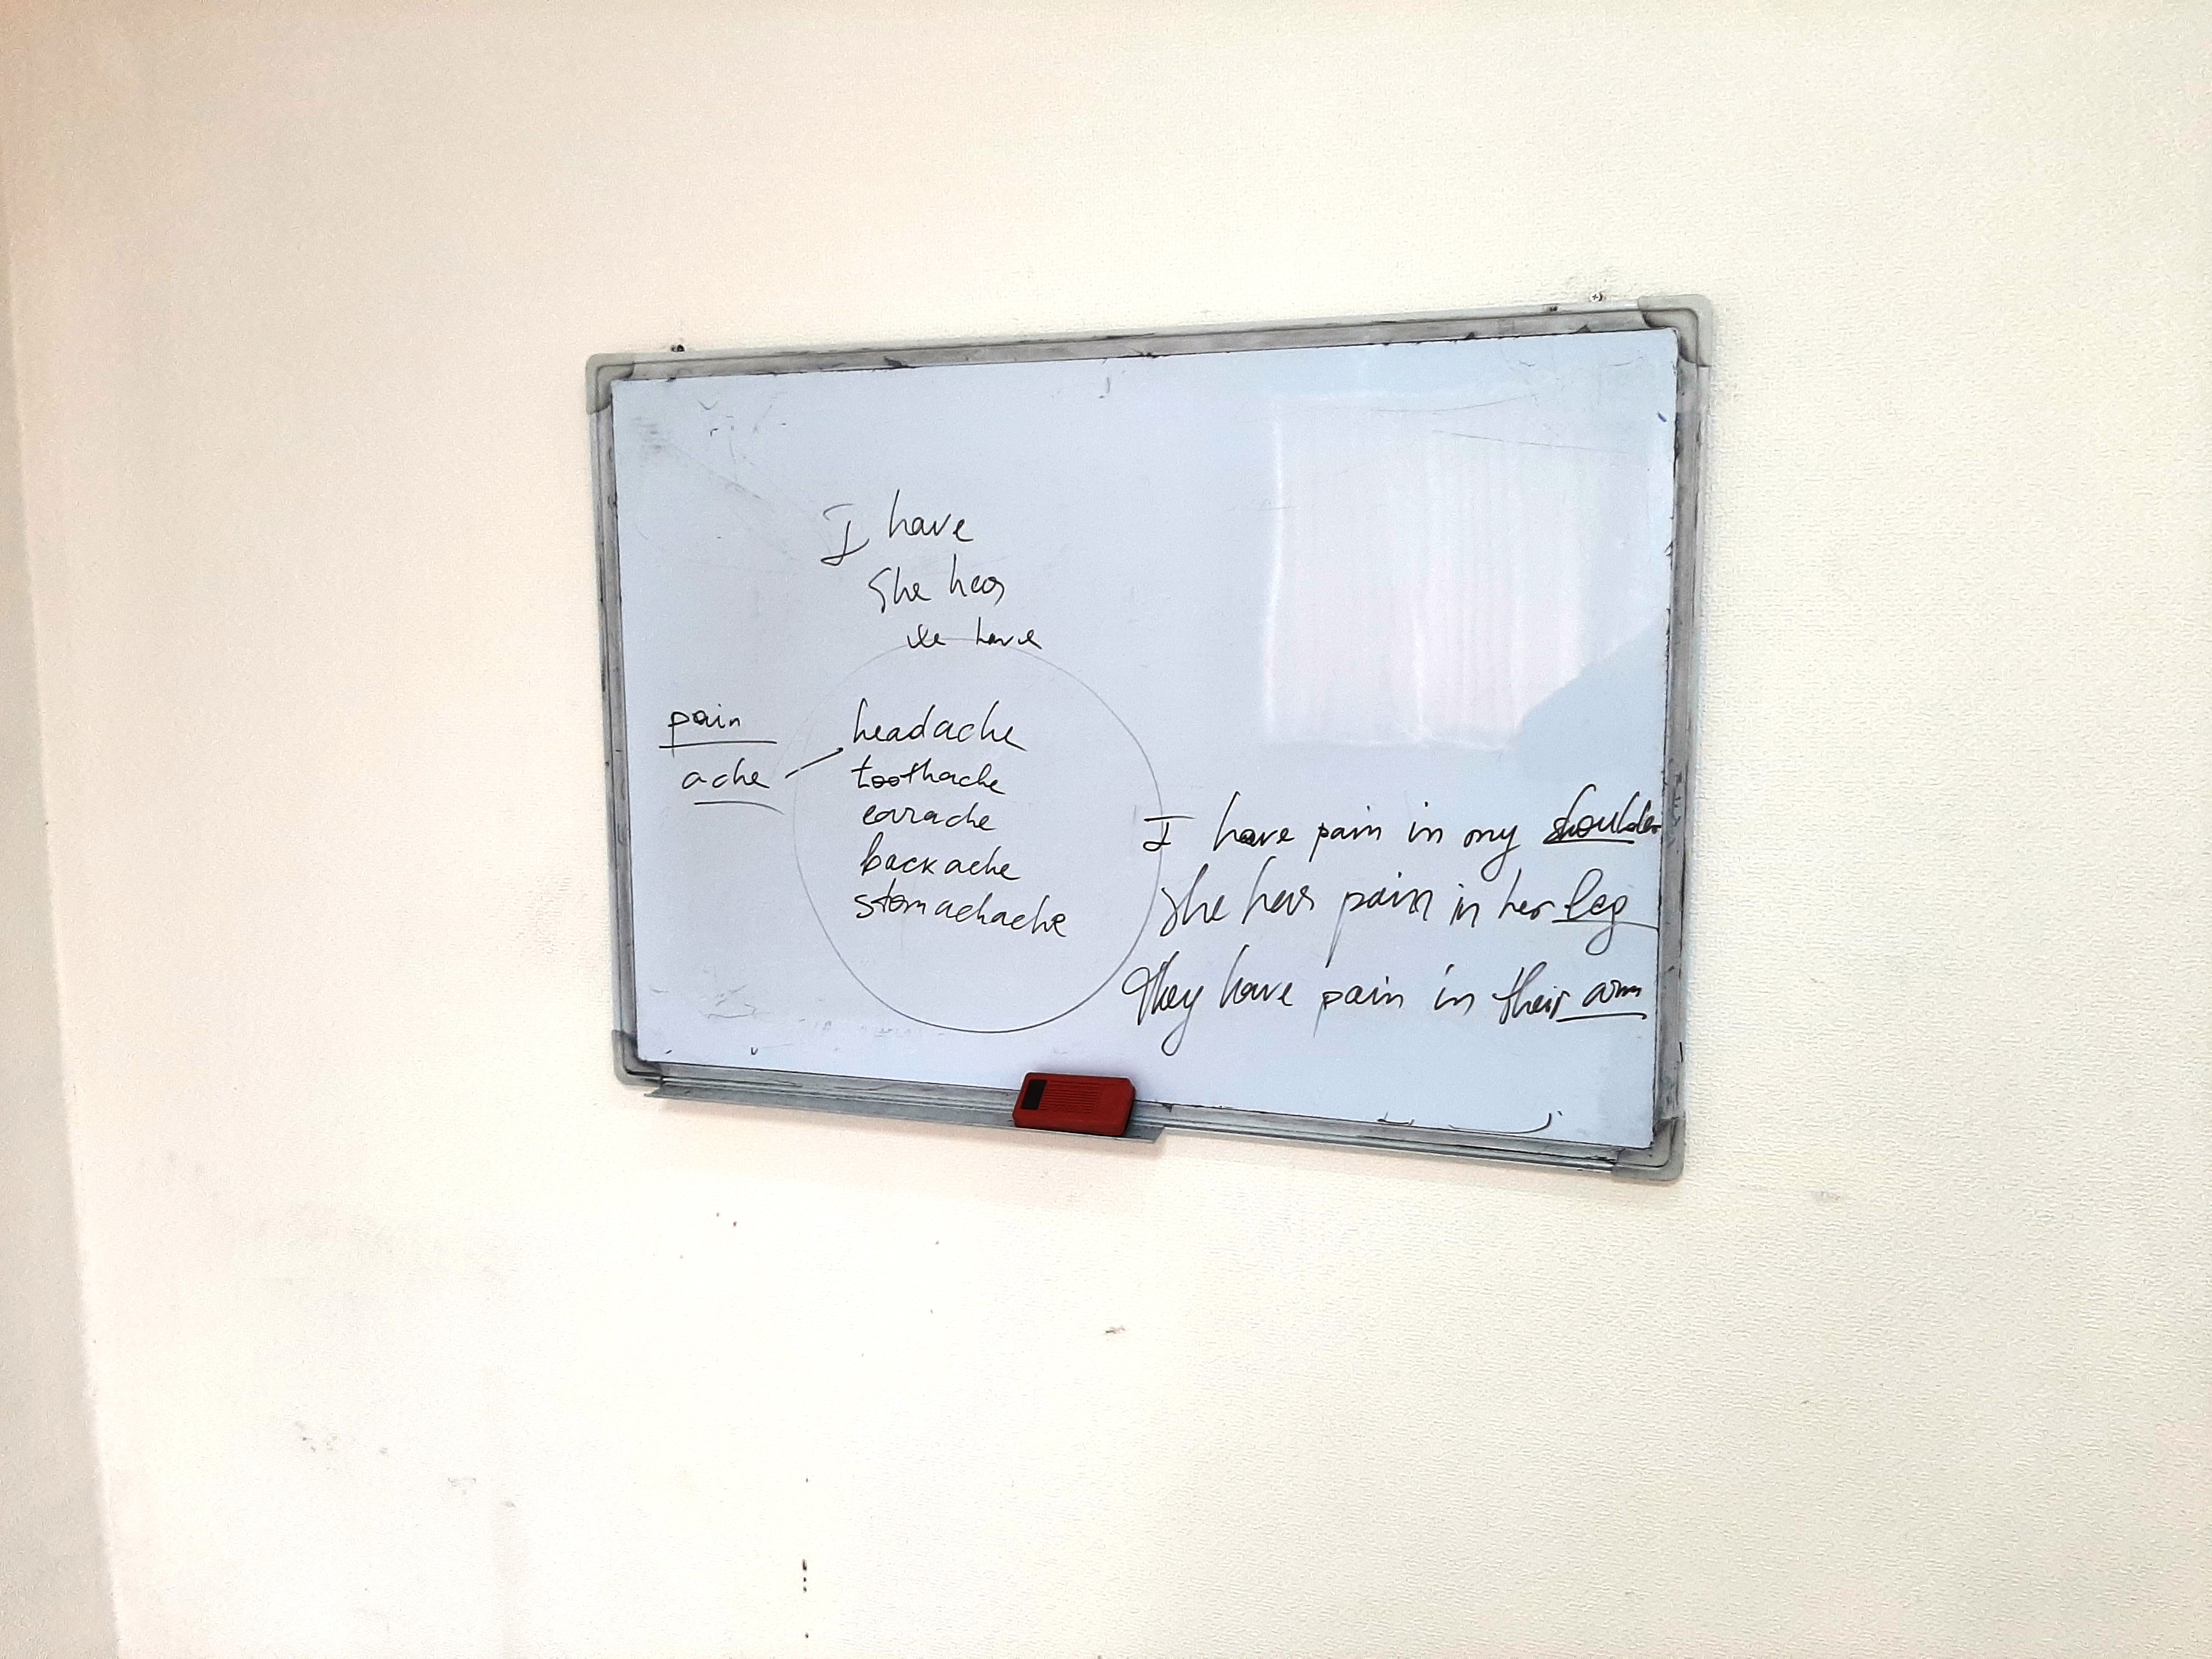 I have
She has
We have
pain
ache
headache
toothache
earache
backache
stomachache
I have pain in my shoulder
She has pain in her leg
They have pain in their arm